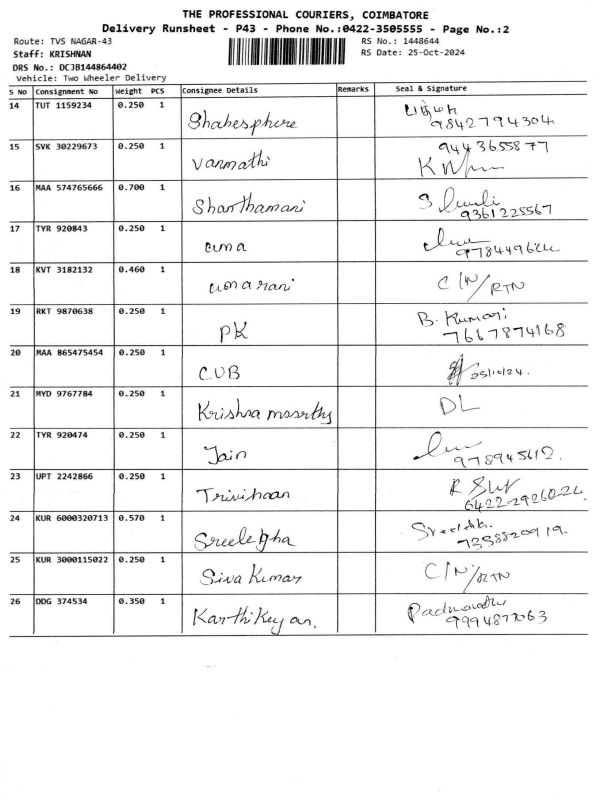 THE PROFESSIONAL COURIERS, COIMBATORE
Delivery Runsheet - P43 - Phone No.:0422-3505555 - Page No.:2
Route: TVS NAGAR-43 RS No.: 1448644
Staff: KRISHNAN RS Date: 25-Oct-2024
DRS No.: DCJB144864402
Vehicle: Two Wheeler Delivery
S No Consignment No Weight PCS Consignee Details Remarks Seal & Signature
14 TUT 1159234 0.250 1
Shakesphere 9842794304
15 SVK 30229673 0.250 1 9443655877
Vanmathi
16 MAA 574765666 0.700 1
Shanthamani 9361225567
17 TYR 920843 0.250 1
uma
18 KVT 3182132 0.460 1 C/N/RTN
umarani
19 RKT 9870638 0.250 1 B. Kumari
PK 7667874168
20 MAA 865475454 0.250 1
CUB 25/10/24.
21 MYD 9767784 0.250 1 DL
Krishna moorthy
22 TYR 920474 0.250 1
Jain 978945612.
23 UPT 2242866 0.250 1
Trivihaan
24 KUR 6000320713 0.570 1
Sreelegha 7358820919.
25 KUR 3000115022 0.250 1 C/N/RTN
Siva Kumar
26 DDG 374534 0.350 1
Karthikeyan. 9994877063